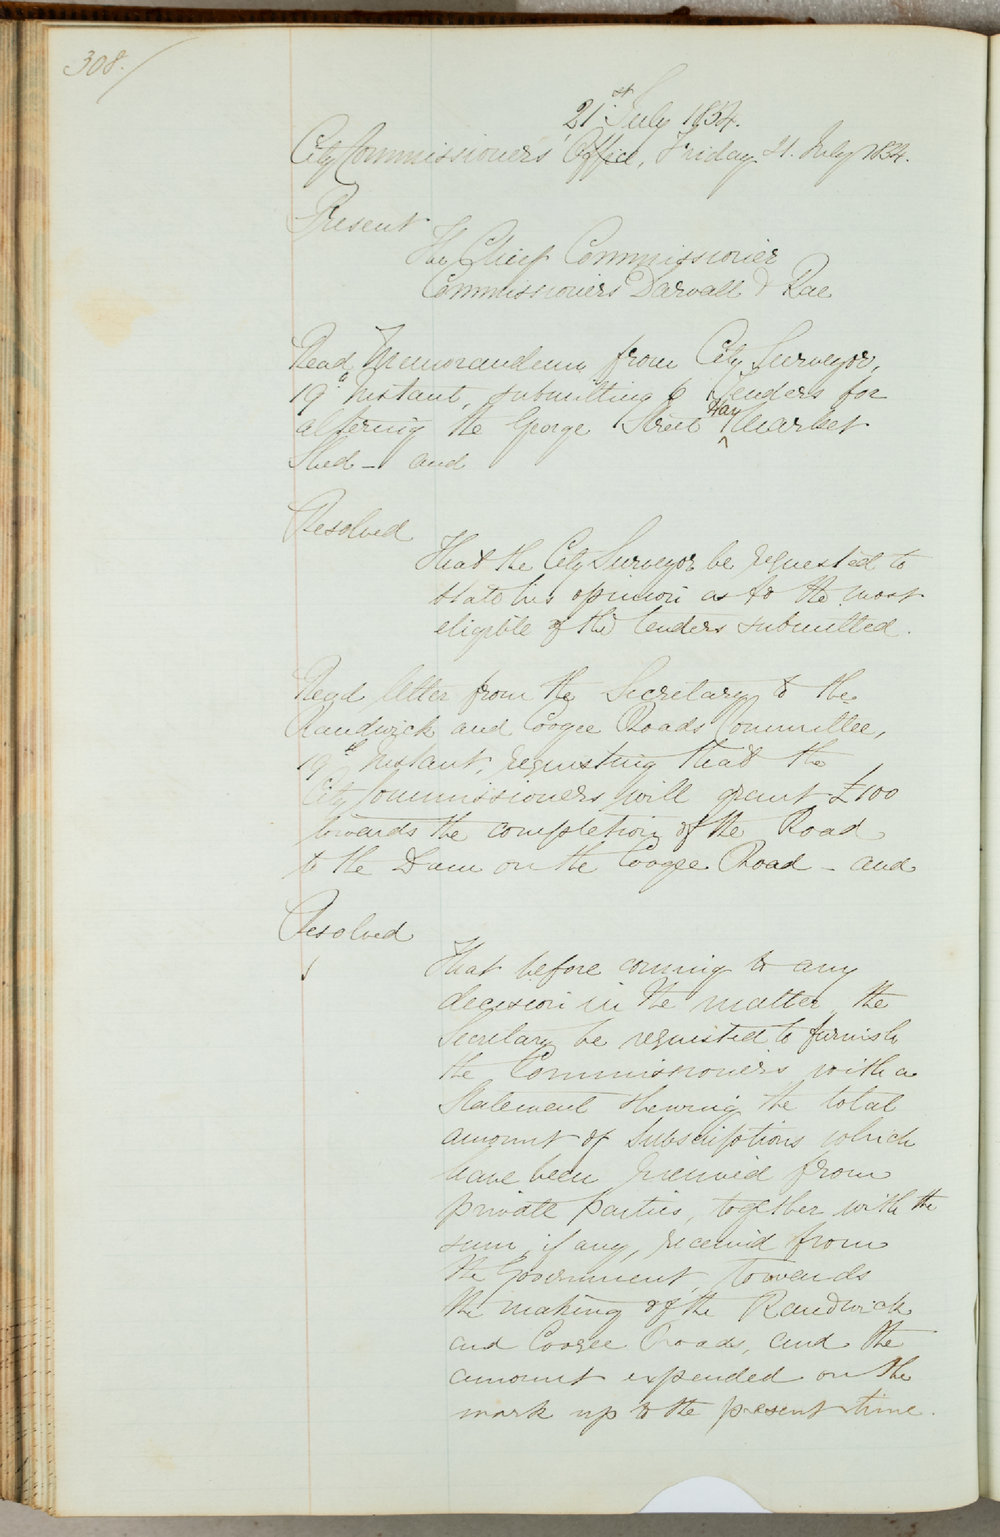 308.
21st July 1854.
City Commissioners' Office, Friday 21. July 1854.
Present
The Chief Commissioner
Commissioners Darvall & Rae
Read Memorandum from City Surveyor,
19th Instant, submitting 6 Tenders for
altering the George Street Hay Market
Shed - and
Resolved
That the City Surveyor be requested to
state his opinion as to the most
eligible of the tenders submitted.
Read letter from the Secretary to the
Randwick and Coogee Roads Committee,
19th Instant, requesting that the
City Commissioners will grant £100
towards the completion of the Road
to the Dam on the Coogee Road - and
Resolved
That before coming to any
decision in the matter, the
Secretary be requested to furnish
the Commissioners with a
Statement shewing the total
amount of Subscriptions which
have been received from
private parties, together with the
sum, if any, received from
the Government, towards
the making of the Randwick
and Coogee Roads, and the
amount expended on the
work up to the present time.